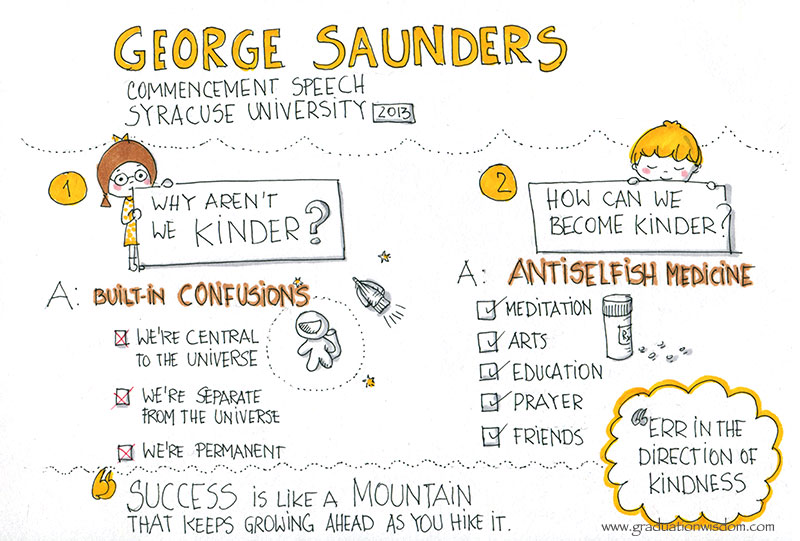 GEORGE SAUNDERS
COMMENCEMENT SPEECH
SYRACUSE UNIVERSITY 2013
1
WHY AREN'T
WE KINDER?
A: BUILT-IN CONFUSIONS
WE'RE CENTRAL
TO THE UNIVERSE
WE'RE SEPARATE
FROM THE UNIVERSE
WE'RE PERMANENT
2
HOW CAN WE
BECOME KINDER?
A: ANTISELFISH MEDICINE
MEDITATION
ARTS
EDUCATION
PRAYER
FRIENDS
Rx
"ERR IN THE
DIRECTION OF
KINDNESS
"SUCCESS IS LIKE A MOUNTAIN
THAT KEEPS GROWING AHEAD AS YOU HIKE IT.
www.graduationwisdom.com